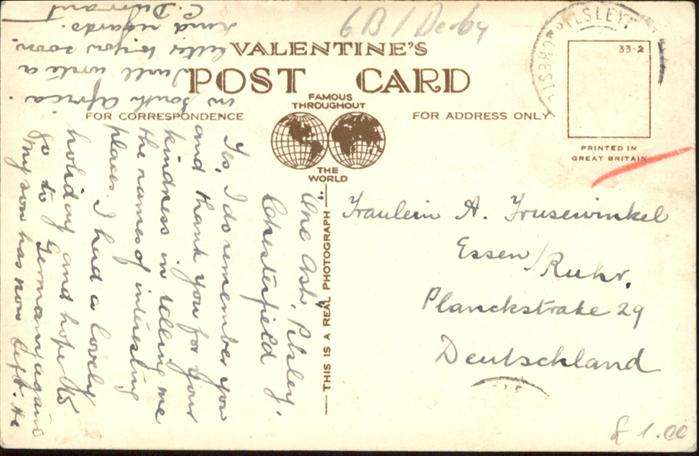 6B/Derby
PILSLEY
CHEST
VALENTINE'S
POST CARD
FAMOUS
THROUGHOUT
THE
WORLD
FOR CORRESPONDENCE
FOR ADDRESS ONLY
33-2
PRINTED IN
GREAT BRITAIN
THIS IS A REAL PHOTOGRAPH
"One Ash" Pilsley,
Chesterfield
Yes, I do remember you
and thank you for your
kindness in telling me
the names of interesting
places. I had a lovely
holiday and hope to
go to Germany again
My son has now left. He
in South Africa.
I will write a
letter to you soon.
Kind regards.
C. Durrant
Fraulein A. Trusewinkel
Essen/Ruhr.
Planckstrake 29
Deutschland
£1.00